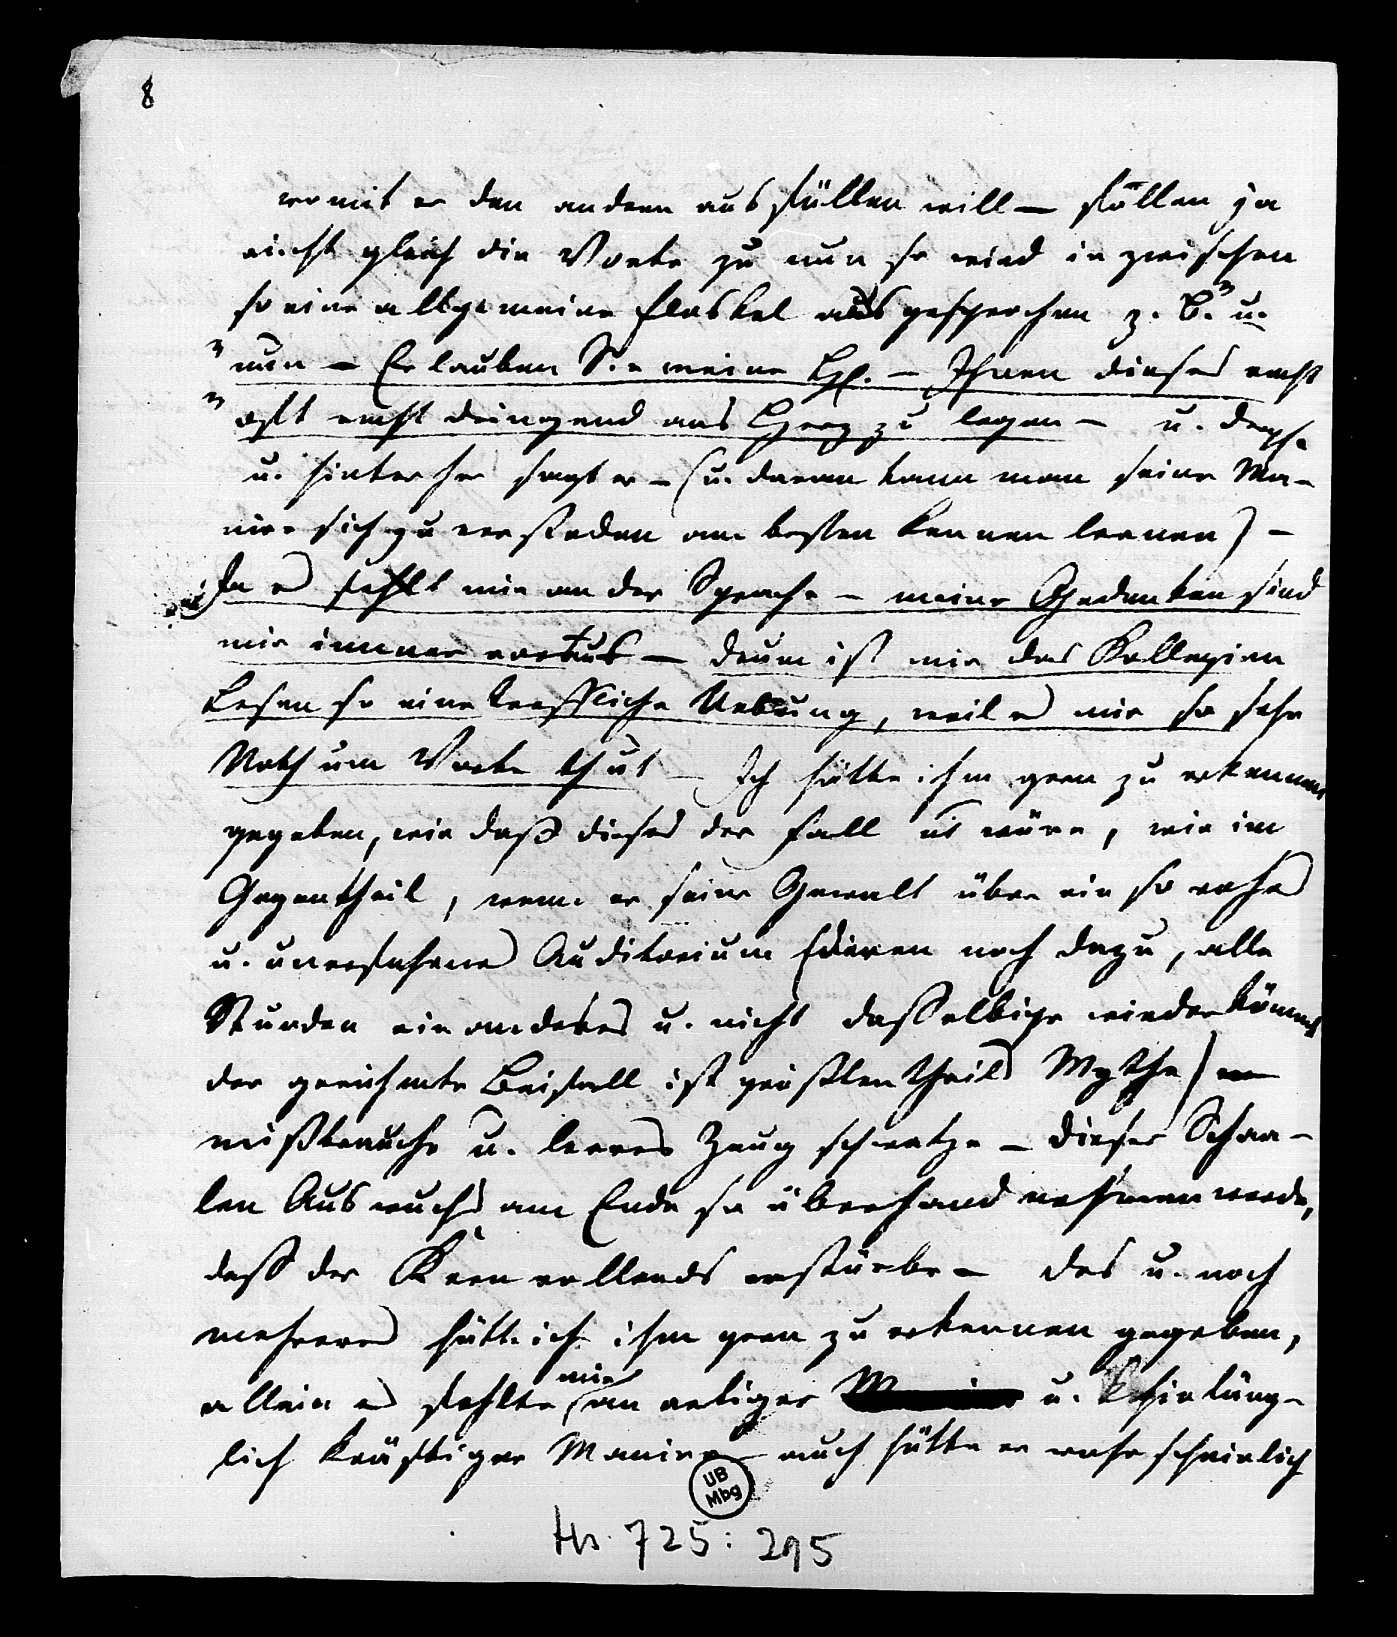 8
womit er den andern ausfüllen will — fällen ja
nicht gleich die Worte zu nun so wird in zwischen
so eine allgemeine floskel ausgesprochen z. B. „u.
„nun — Erlauben Sie meine HH. — Ihnen dieses recht
„oft recht dringend ans Herz zu legen — u. dergl.
u. hinterher sagt er — (u. daran kann man seine Ma-
nier sich zu verreden am besten kennen lernen) —
Ja es fehlt mir an der Sprache — meine Gedanken sind
mir immer voraus — drum ist mir das Kollegien
Lesen so eine treffliche Uebung, weil es mir so sehr
Noth um Worte thut — Ich hätte ihm gern zu erkennen
gegeben, wie daß dieses der Fall nicht wäre, wie im
Gegentheil, wenn er seine Gewalt über ein so rohes
u. unerfahrenes Auditorium (deren noch dazu, alle
Stunden ein anderes u. nicht dasselbige wiederkömmt
der gerühmte Beifall ist größtentheils Mythe)
misbrauche u. leeres Zeug schwatze — dieser Schaa-
len Auswuchs am Ende so überhand nehmen werde,
daß der Kern vollends erstürbe — das u. noch
mehreres hätt ich ihm gern zu erkennen gegeben,
allein es fehlte mir an artiger u. hinläng-
lich kräftiger Manier — auch hätte er wahrscheinlich
UB
Mbg
Hs. 725: 295